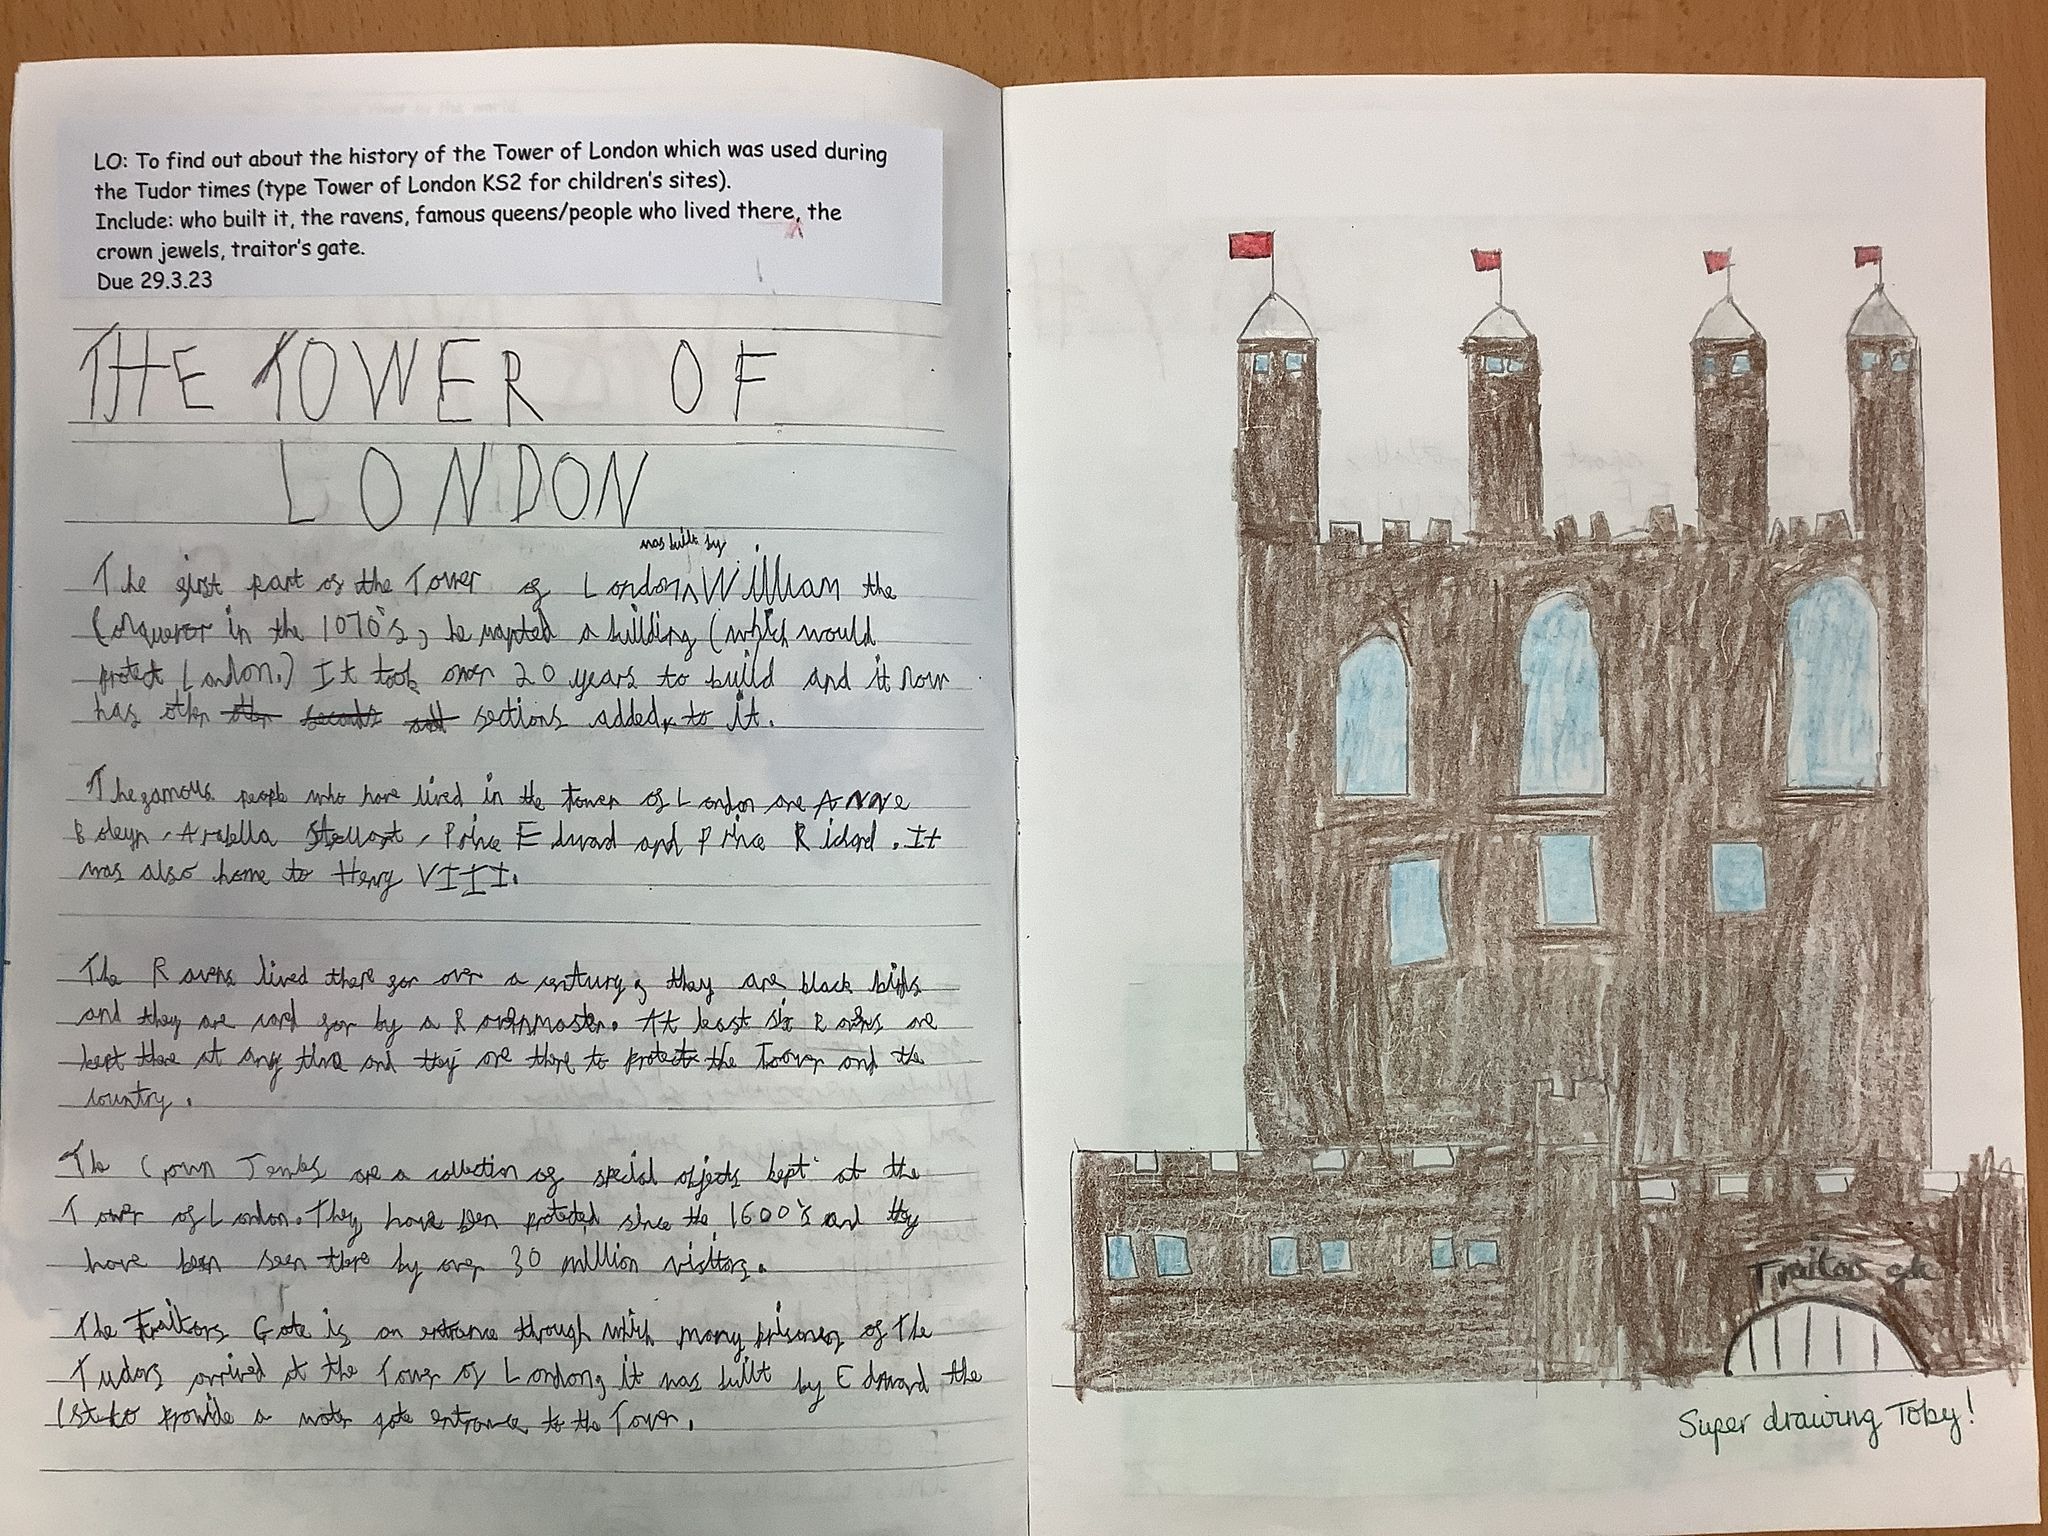 LO: To find out about the history of the Tower of London which was used during
the Tudor times (type Tower of London KS2 for children's sites).
Include: who built it, the ravens, famous queens/people who lived there, the
crown jewels, traitor's gate.
Due 29.3.23
THE TOWER OF
LONDON
was built by
The first part of the Tower of London ^ William the
Conqueror in the 1070's, he wanted a building (which would
protect London.) It took over 20 years to build and it now
has other sections added to it.
The famous people who have lived in the tower of London are Anne
Boleyn, Arabella Prince Edward and Prince Richard. It
was also home to Henry VIII.
The Ravens lived there for over a century, they are black birds
and they are card for by a Ravenmaster. At least six Ravens are
kept there at any time and they are there to protect the Toower and the
country.
The Crown Jewles are a collection of special objects kept at the
Tower of London. They have been protected since the 1600's and they
have been seen there by over 30 million visitors.
The Traitors Gate is an entrance through which many prisoners of The
Tudors arrived at the Tower of London, it was built by Edward the
1st to provide a water gate entrance to the Tower.
Traitors
Super drawing Toby!